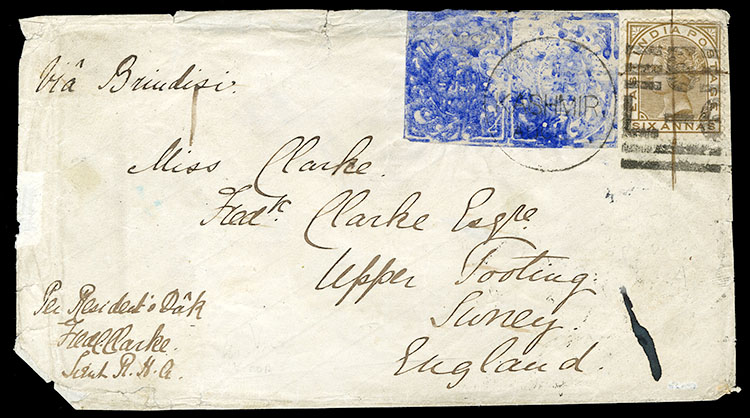 Viâ Brindisi.
KASHMIR
INDIA POSTAGE
SIX ANNAS
Miss Clarke.
Fredk. Clarke Esqre.
Upper Tooting.
Surrey.
England.
Per Resident's Dâk
Fred. Clarke.
Lieut R. H. A.